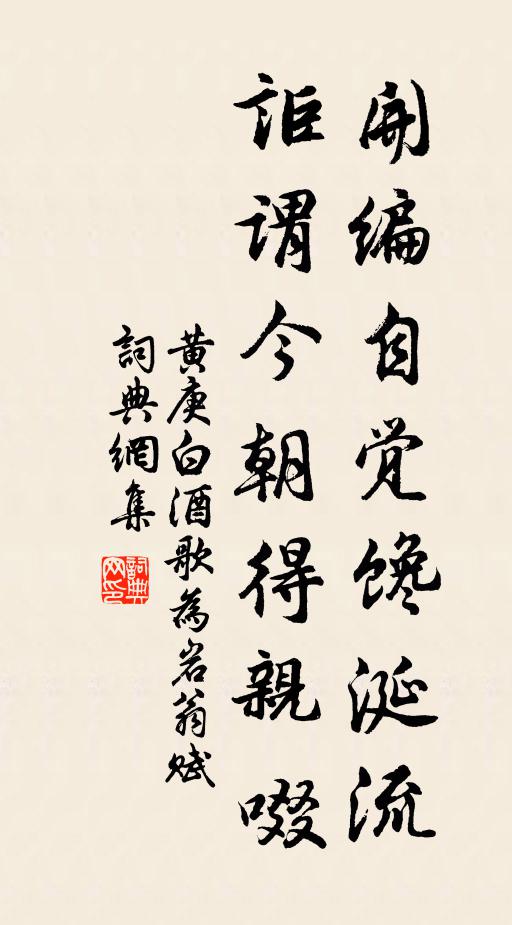 開编自觉馋涎流
詎谓今朝得親啜
黃庚白酒歌為岩翁賦
詞典網集
詞典
网印